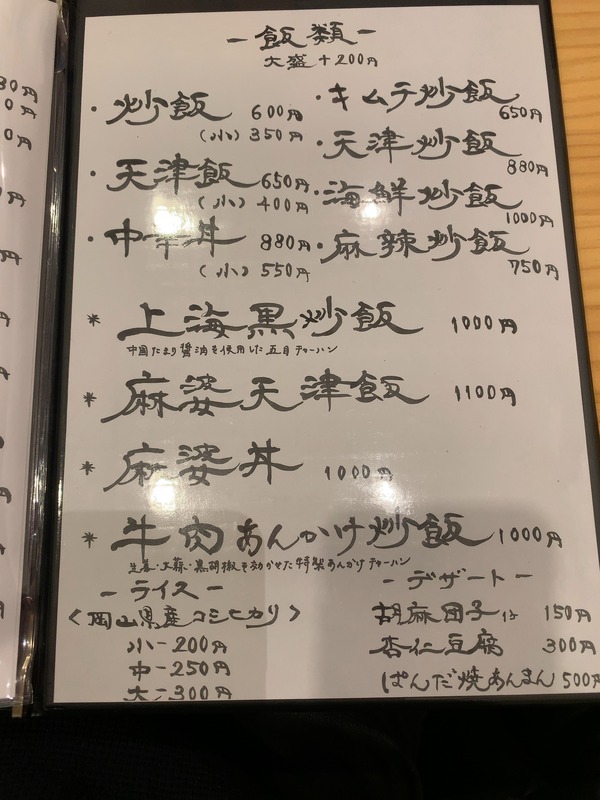 -飯類-
大盛+200円
・炒飯 600円
(小) 350円
・天津飯 650円
(小) 400円
・中華丼 880円
(小) 550円
・キムチ炒飯
650円
・天津炒飯
880円
・海鮮炒飯
1000円
・麻辣炒飯
750円
*上海黒炒飯 1000円
中国たまり醤油を使用した五目チャーハン
*麻婆天津飯 1100円
*麻婆丼 1000円
*牛肉あんかけ炒飯 1000円
生姜・大蒜・黒胡椒を効かせた特製あんかけチャーハン
-ライス-
〈岡山県産コシヒカリ〉
小-200円
中-250円
大-300円
-デザート-
胡麻団子 150円
杏仁豆腐 300円
ぱんだ焼あんまん 500円